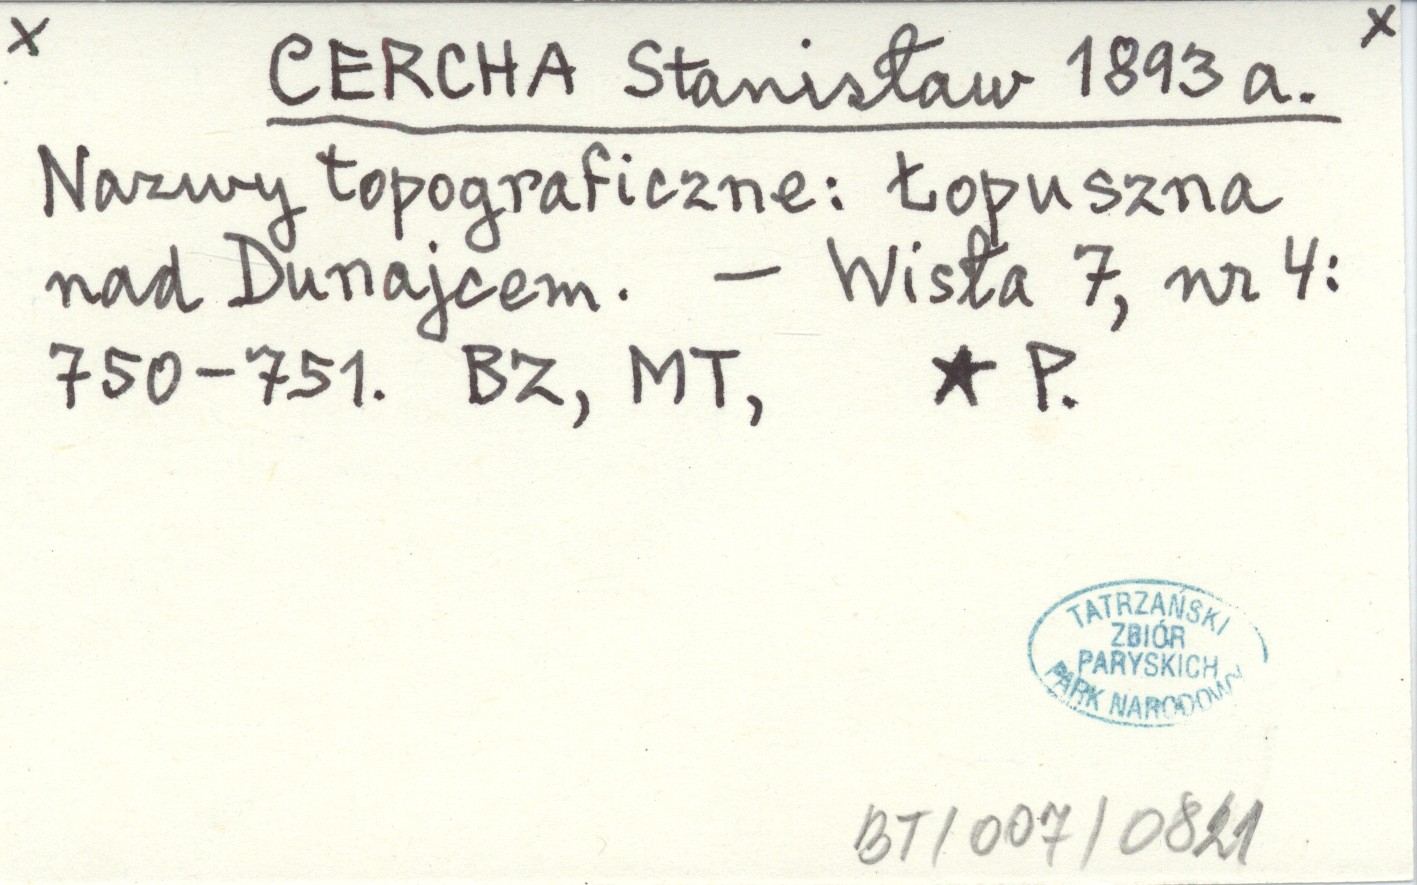 x CERCHA Stanisław 1893 a. x
Nazwy topograficzne: Łopuszna
nad Dunajcem. — Wisła 7, nr 4:
750-751. BZ, MT, ★ P.
TATRZAŃSKI
ZBIÓR
PARYSKICH
PARK NARODOWY
BT/007/0821